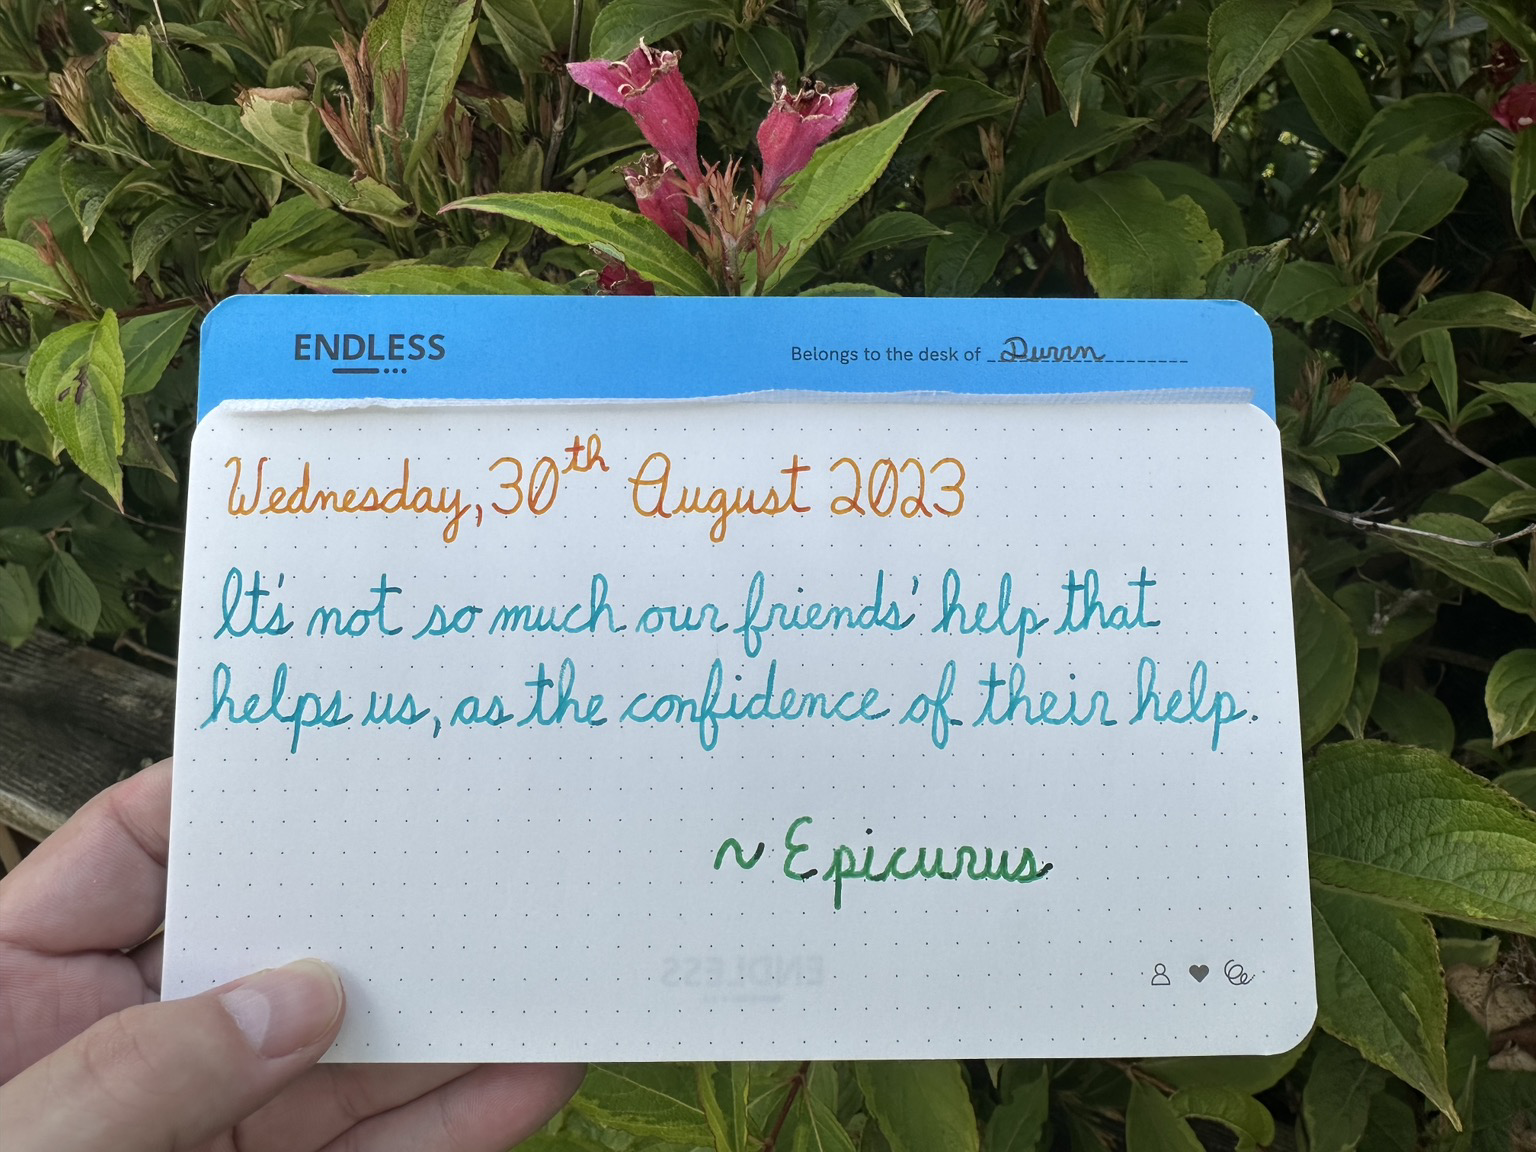 ENDLESS
Belongs to the desk of Durrn
Wednesday, 30th August 2023
It's not so much our friends' help that
helps us, as the confidence of their help.
~ Epicurus
ENDLESS